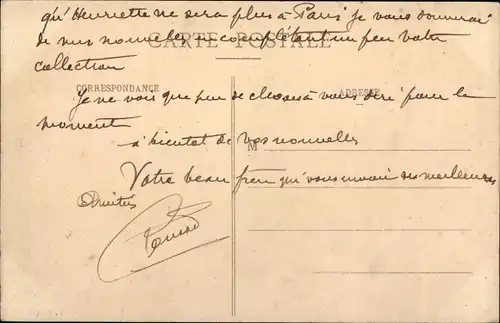 qu'Henriette ne sera plus à Paris je vous donnerai
de mes nouvelles en complétant un peu votre
CARTE POSTALE
collection
CORRESPONDANCE
ADRESSE
Je ne vois que peu de choses à vous dire pour le
moment
à bientot de vos nouvelles
M
Votre beau frère qui vous envoie ses meilleures
Amitiés